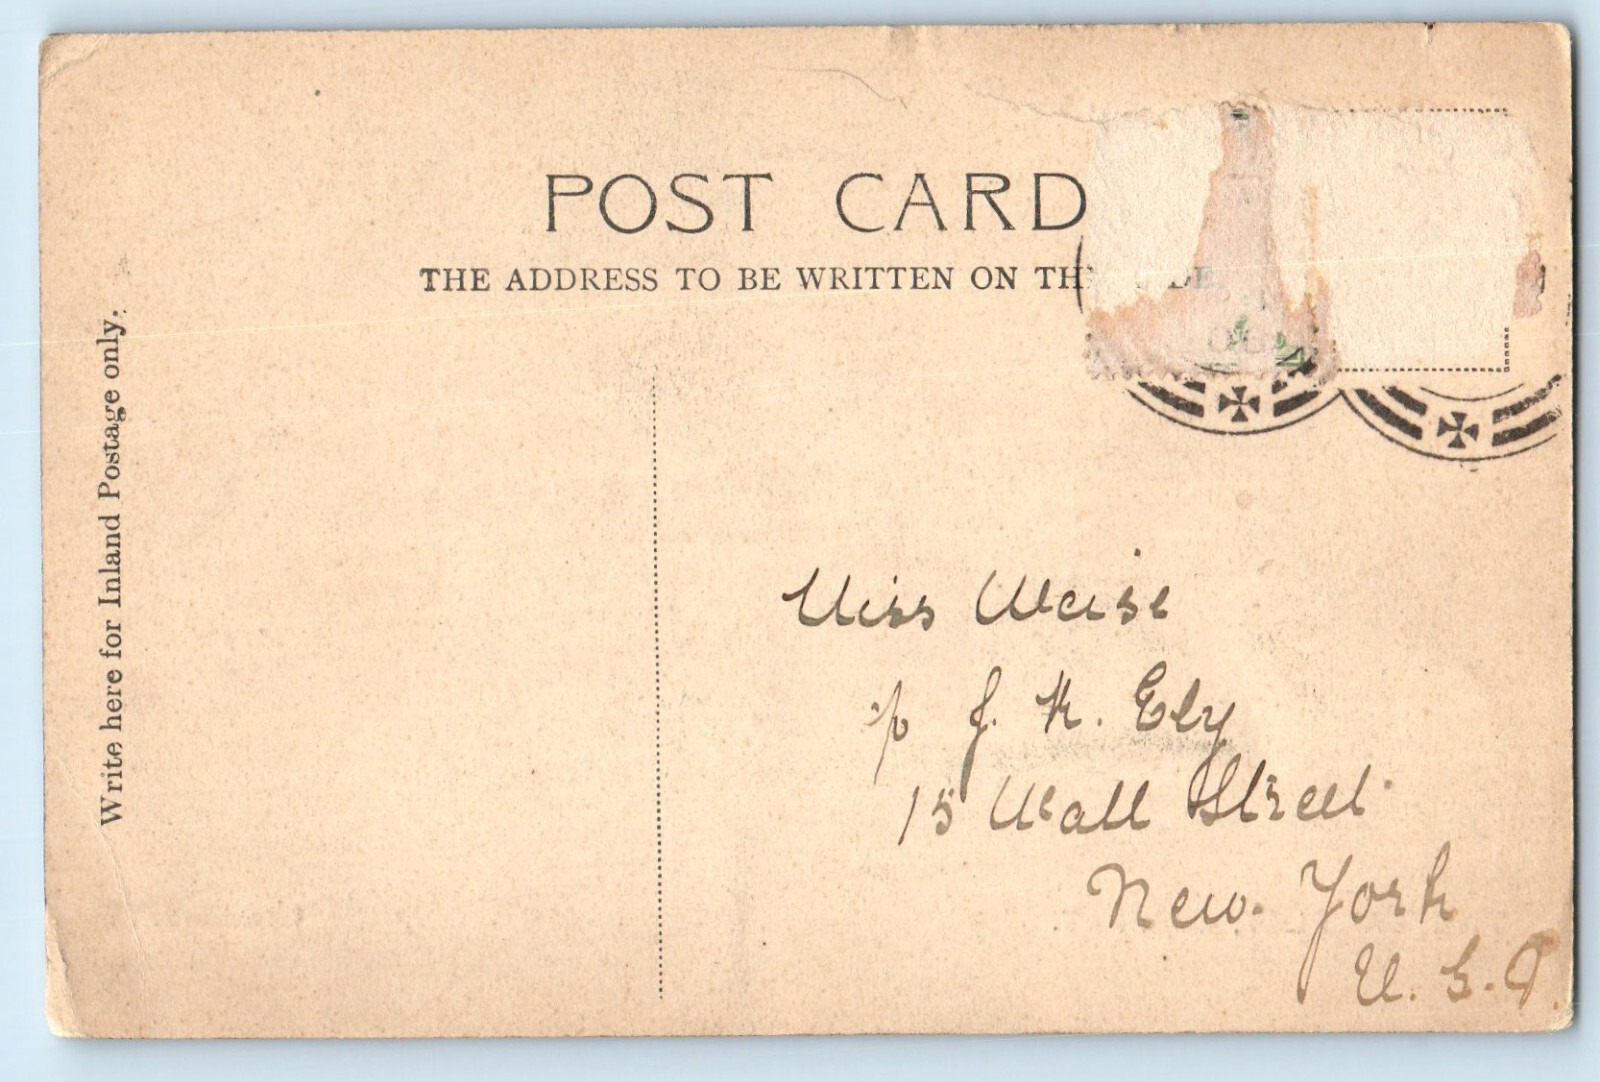 POST CARD
THE ADDRESS TO BE WRITTEN ON TH DE
Write here for Inland Postage only.
Miss Weise
J. K. Ely
15 Wall Street
New York
U. S. A.